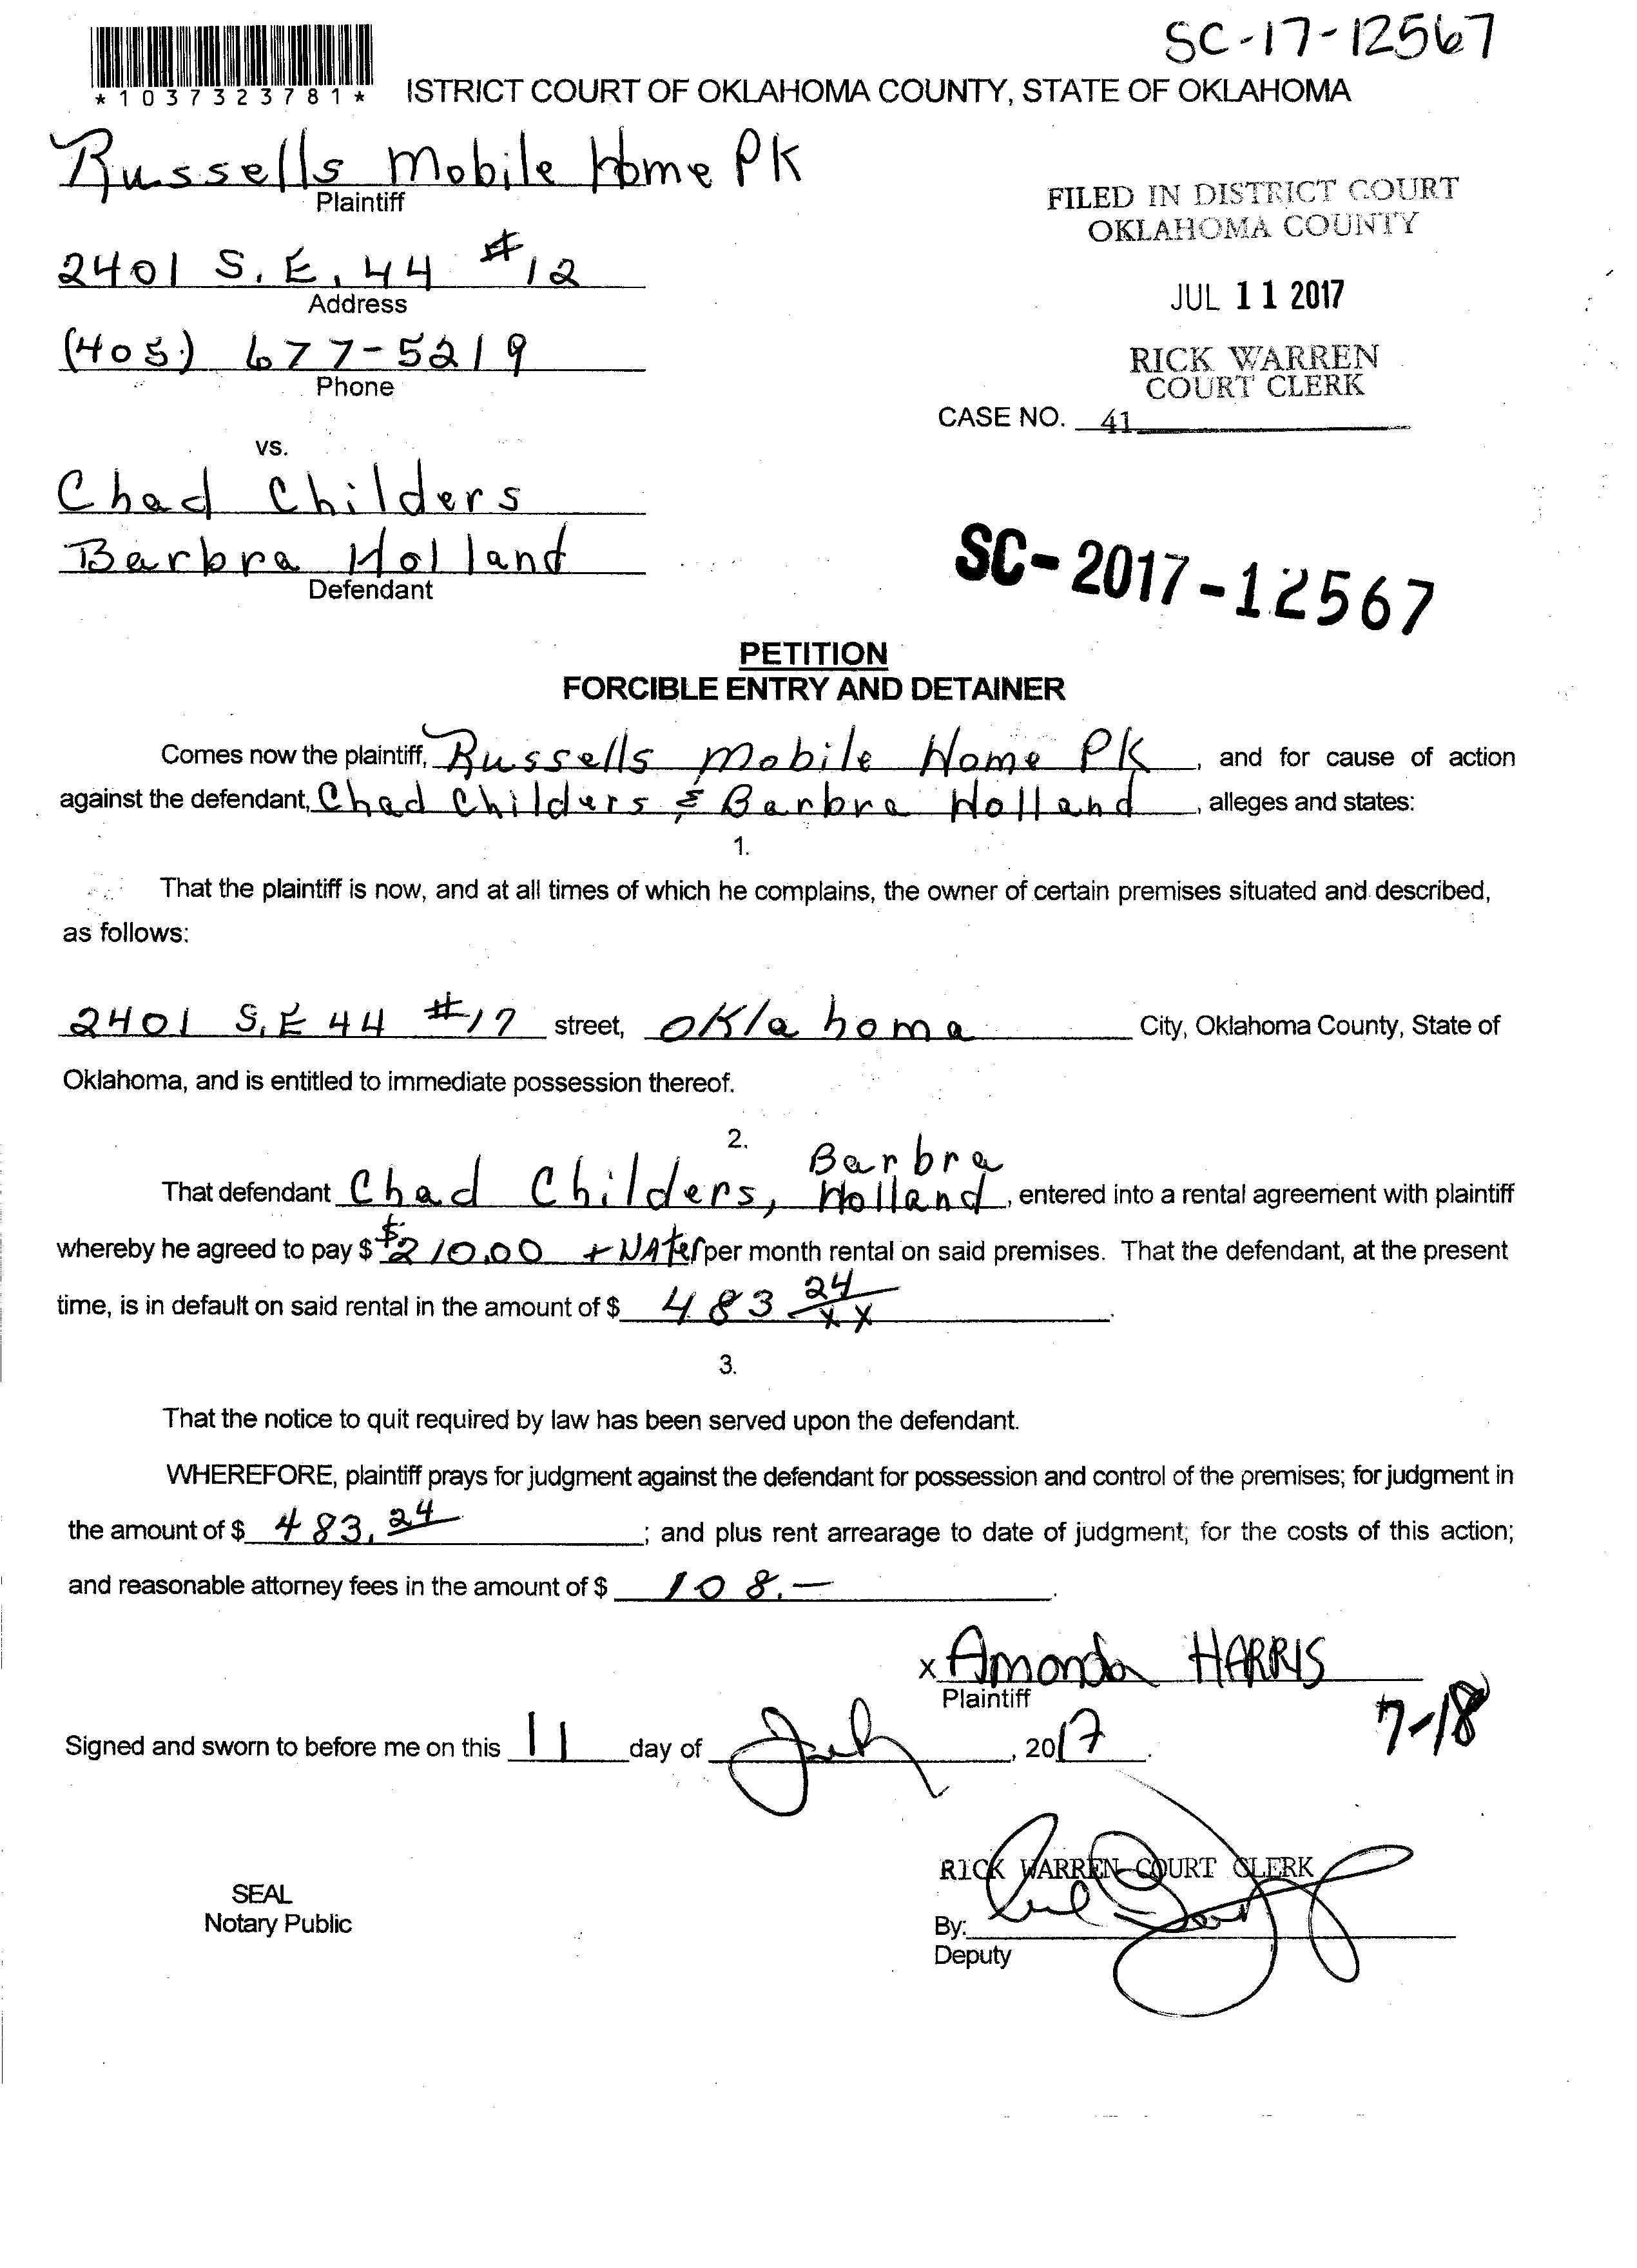 SC-17-12567
*1037323781*
ISTRICT COURT OF OKLAHOMA COUNTY, STATE OF OKLAHOMA
Russells Mobile Home PK
Plaintiff
FILED IN DISTRICT COURT
OKLAHOMA COUNTY
2401 S.E. 44 #12
Address
JUL 11 2017
(405) 677-5219
Phone
RICK WARREN
COURT CLERK
CASE NO. 41
vs.
Chad Childers
Barbra Holland
Defendant
SC-2017-12567
PETITION
FORCIBLE ENTRY AND DETAINER
Comes now the plaintiff, Russells Mobile Home PK, and for cause of action
against the defendant, Chad Childers & Barbra Holland, alleges and states:
1.
That the plaintiff is now, and at all times of which he complains, the owner of certain premises situated and described,
as follows:
2401 S.E 44 #17 street, Oklahoma City, Oklahoma County, State of
Oklahoma, and is entitled to immediate possession thereof.
2.
Barbra
That defendant Chad Childers, Holland, entered into a rental agreement with plaintiff
whereby he agreed to pay $ $210.00 + WAter per month rental on said premises. That the defendant, at the present
time, is in default on said rental in the amount of $ 483 24/xx.
3.
That the notice to quit required by law has been served upon the defendant.
WHEREFORE, plaintiff prays for judgment against the defendant for possession and control of the premises; for judgment in
the amount of $ 483.24; and plus rent arrearage to date of judgment; for the costs of this action;
and reasonable attorney fees in the amount of $ 108.—.
x Amanda HARRIS
Plaintiff
7-18
Signed and sworn to before me on this 11 day of July, 2017.
RICK WARREN COURT CLERK
SEAL
Notary Public
By:
Deputy